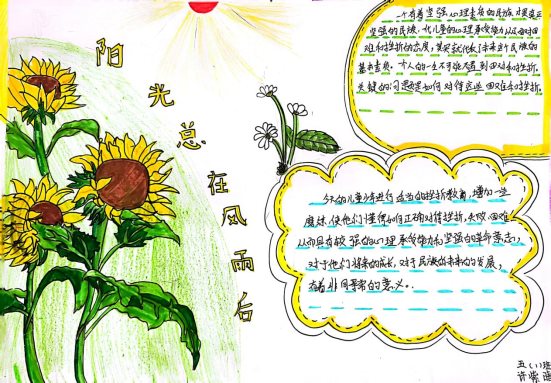 阳光总在风雨后
一个有着坚强心理素质的民族,才是真正
坚强的民族。一代儿童的心理承受能力以及面对困
难和挫折的态度,某
基本素质。一个人的一生不可能不遇到困难和挫折,
关键的问题是如何对待这些困难和挫折。
今天的儿童少年进行适当的挫折教育,增加一些
磨炼,使他们懂得如何正确对待挫折,失败,困难
从而具有较强的心理承受能力和坚强的革命意志,
对于他们将来的成长,对于民族的未来的发展,
有着非同寻常的意义。
五(1)班
许